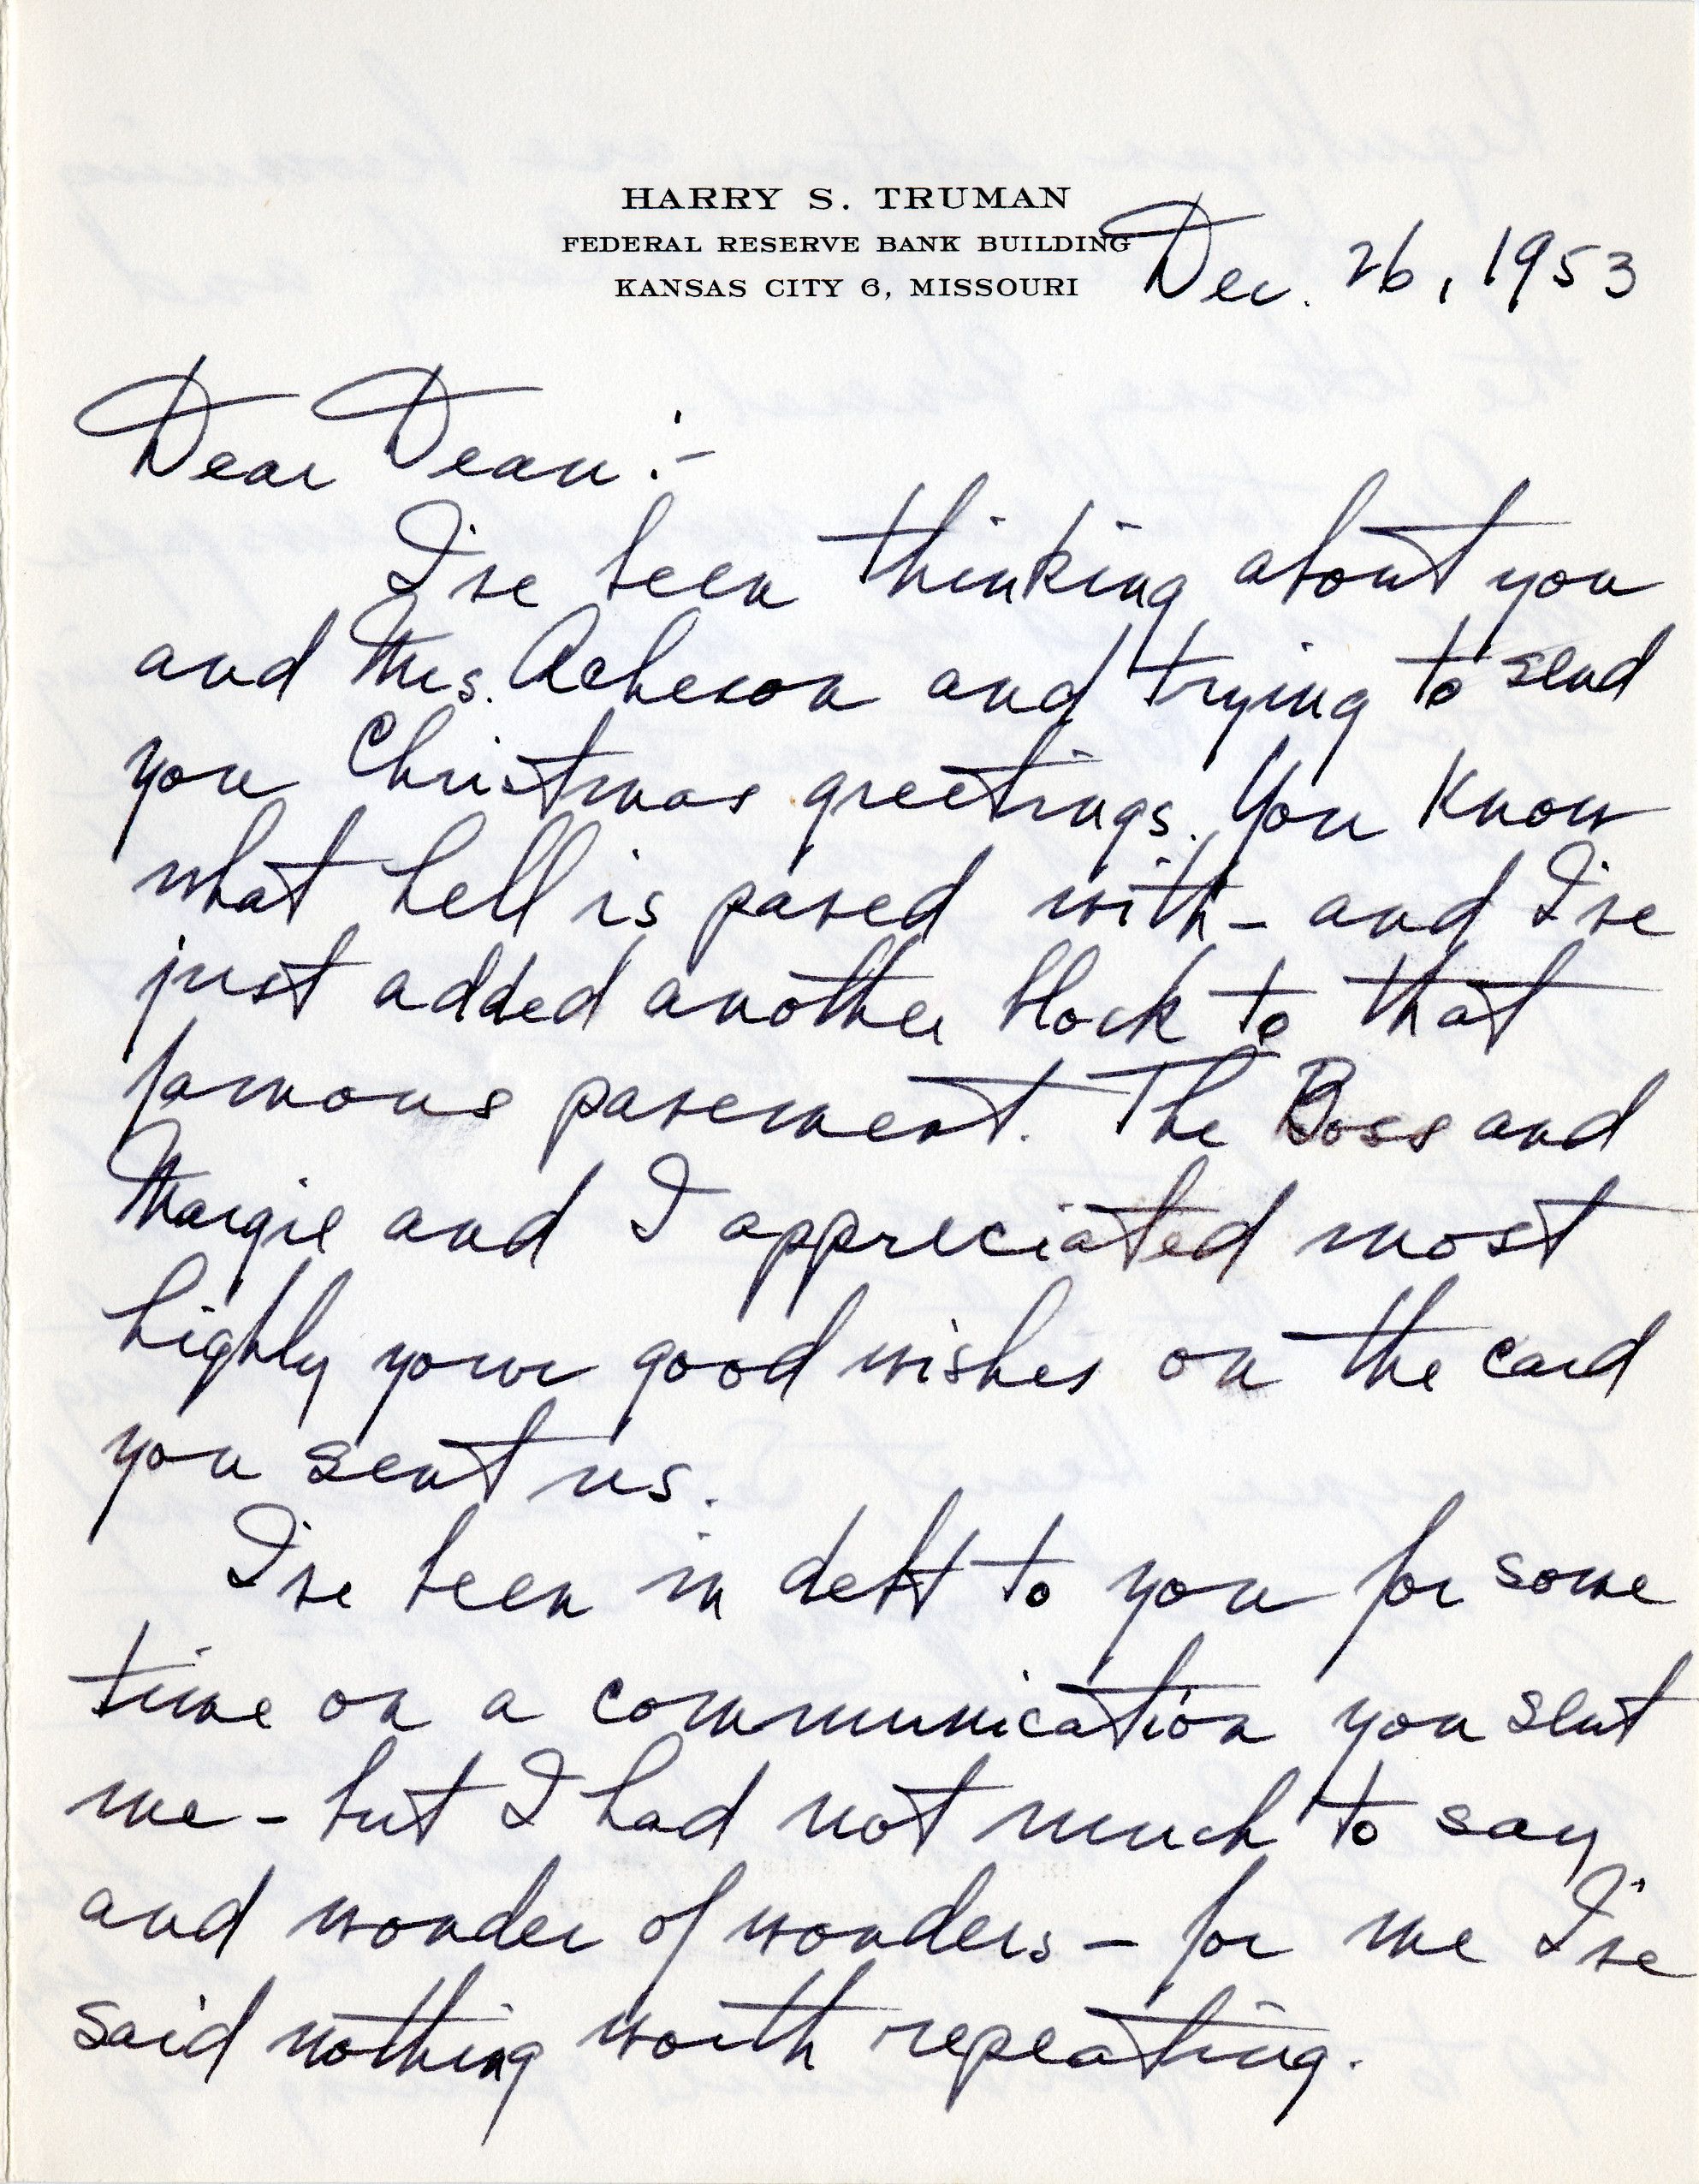 HARRY S. TRUMAN
FEDERAL RESERVE BANK BUILDING
KANSAS CITY 6, MISSOURI
Dec. 26, 1953
Dear Dean:-
I've been thinking about you
and Mrs. Acheson and trying to send
you Christmas greetings. You know
what hell is paved with - and I've
just added another block to that
famous pavement. The Boss and
Margie and I appreciated most
highly your good wishes on the card
you sent us.
I've been in debt to you for some
time on a communication you sent
me - but I had not much to say
and wonder of wonders - for me I've
said nothing worth repeating.